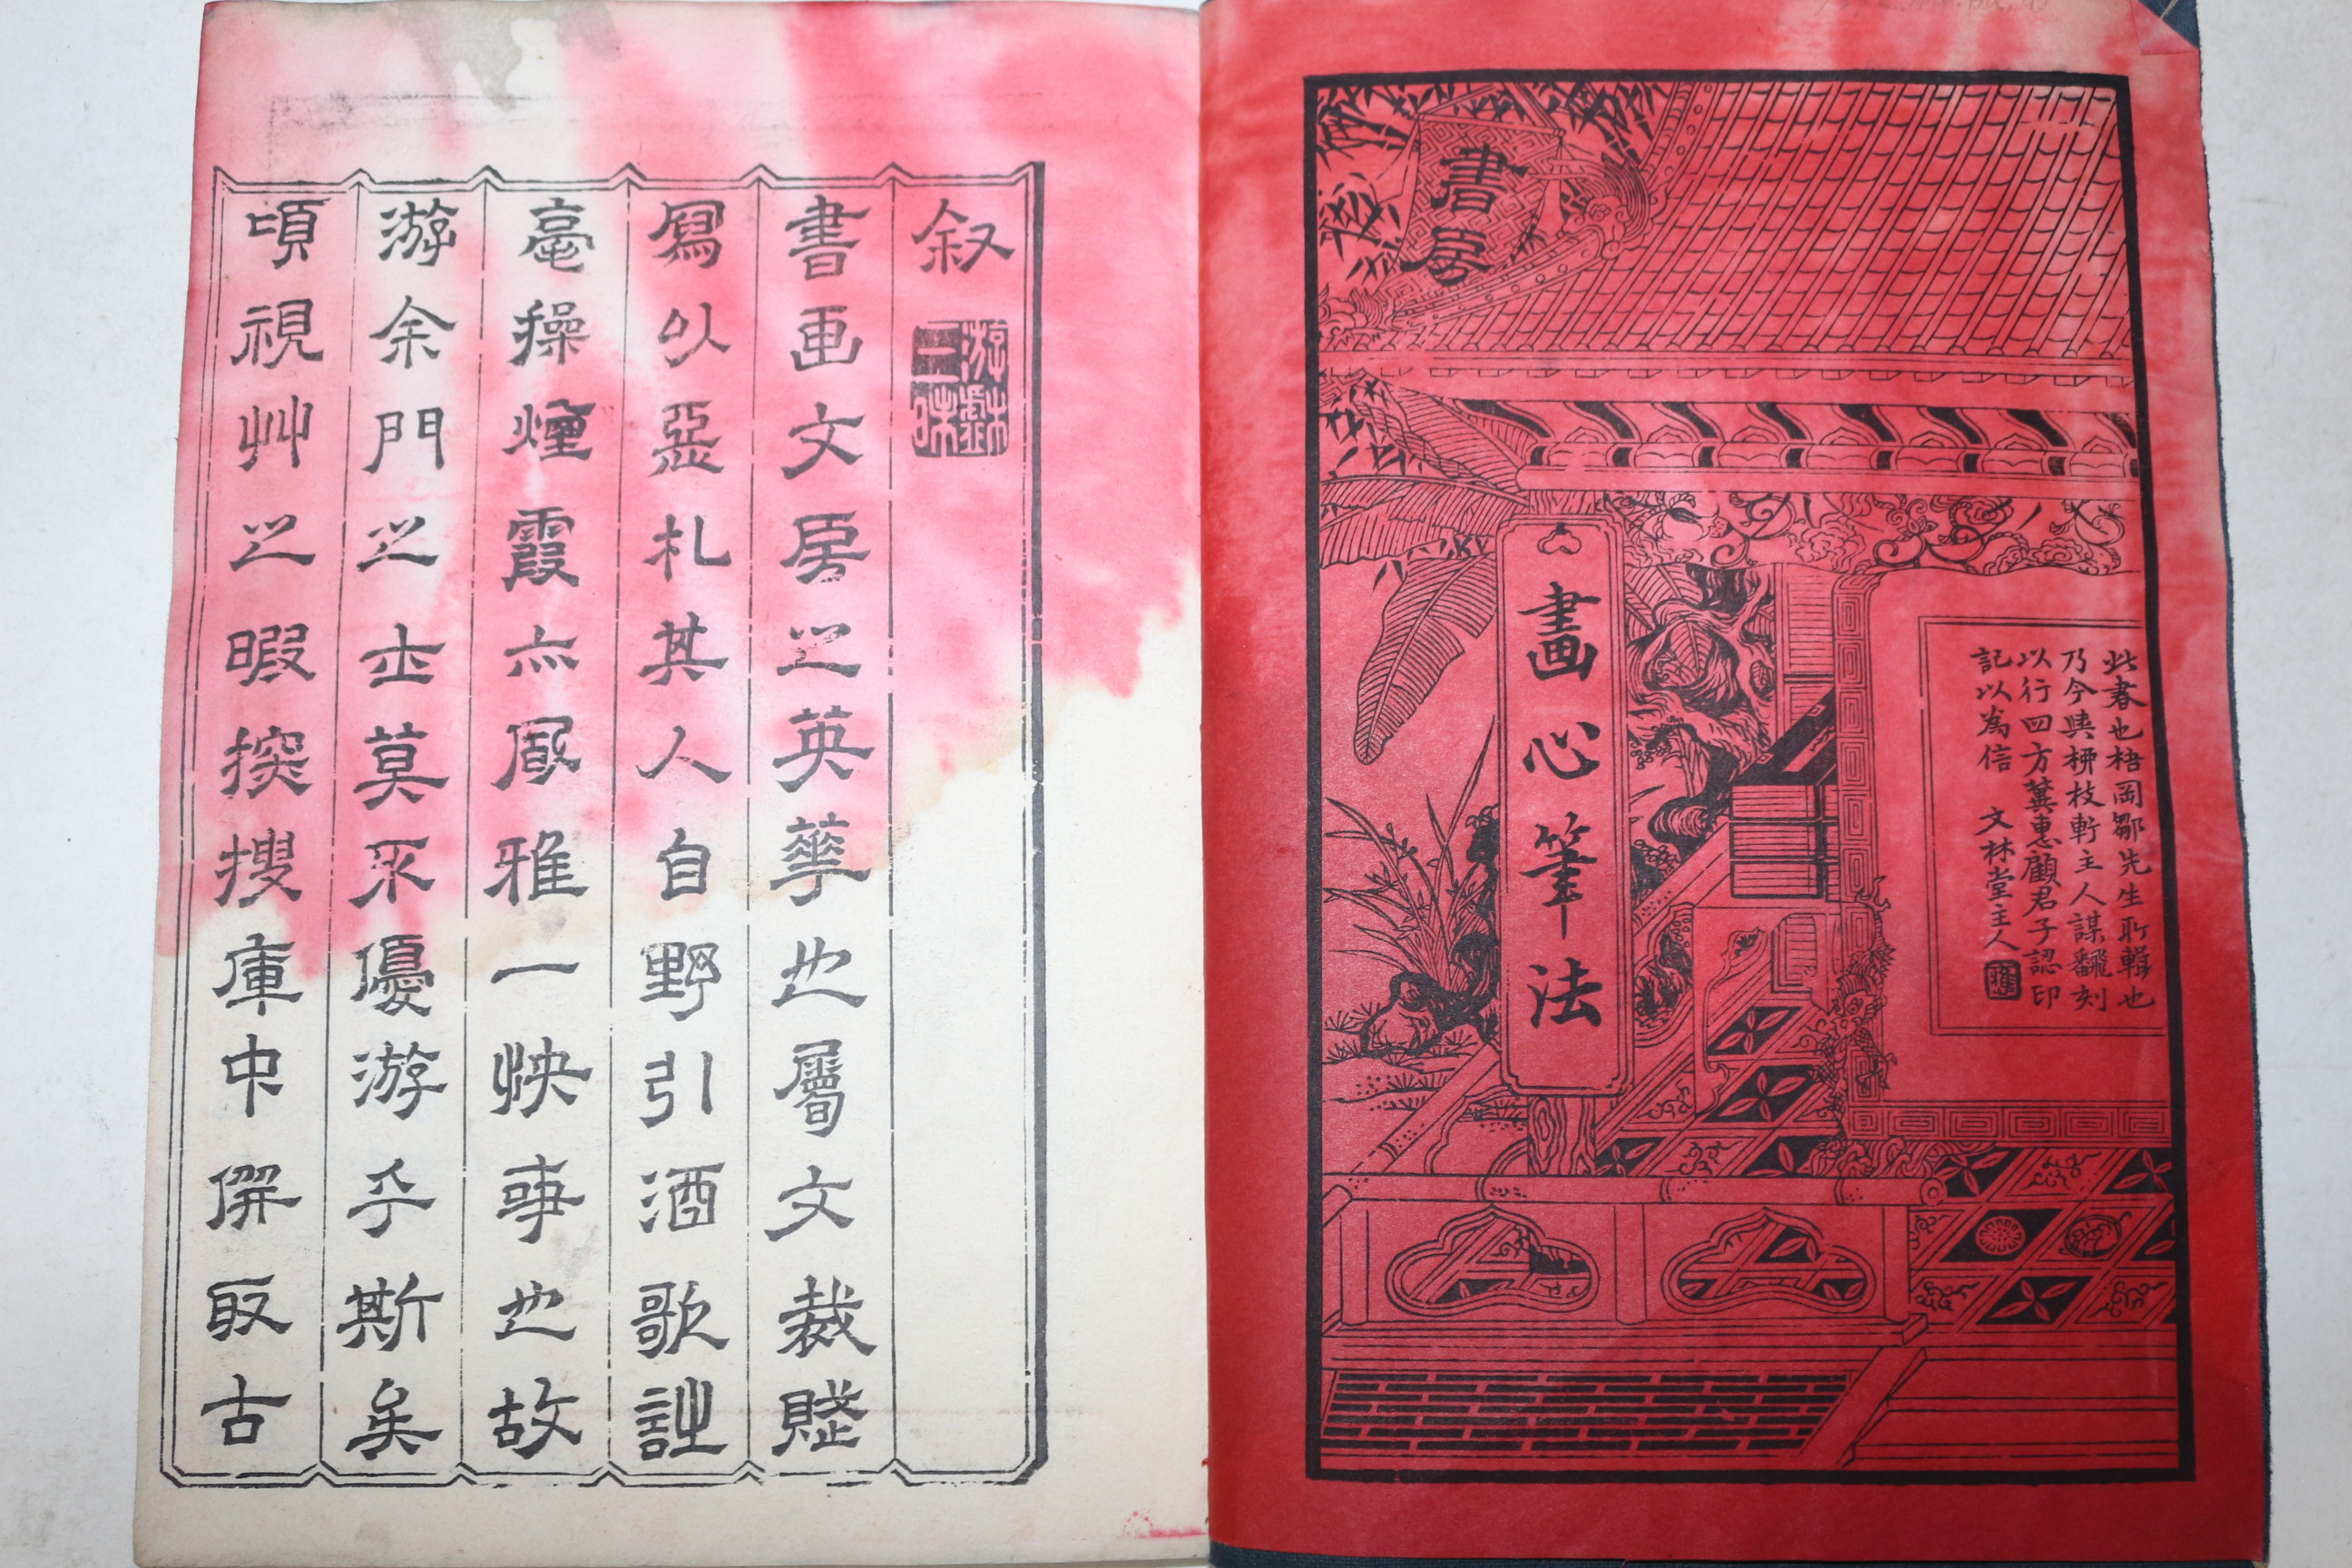 書房
畫心筆法
此書也梧岡鄒先生所輯也
乃今與栁枝軒主人謀飜刻
以行四方冀惠顧君子認印
記以為信　文林堂主人
叙
游埜三昧
書画文房之英華也屬文裁
寫以亞札其人自野引酒歌
毫操煙霞亦風雅一快事也故
游余門之士莫不優游乎斯矣
頃視艸之暇探搜庫中僻取古